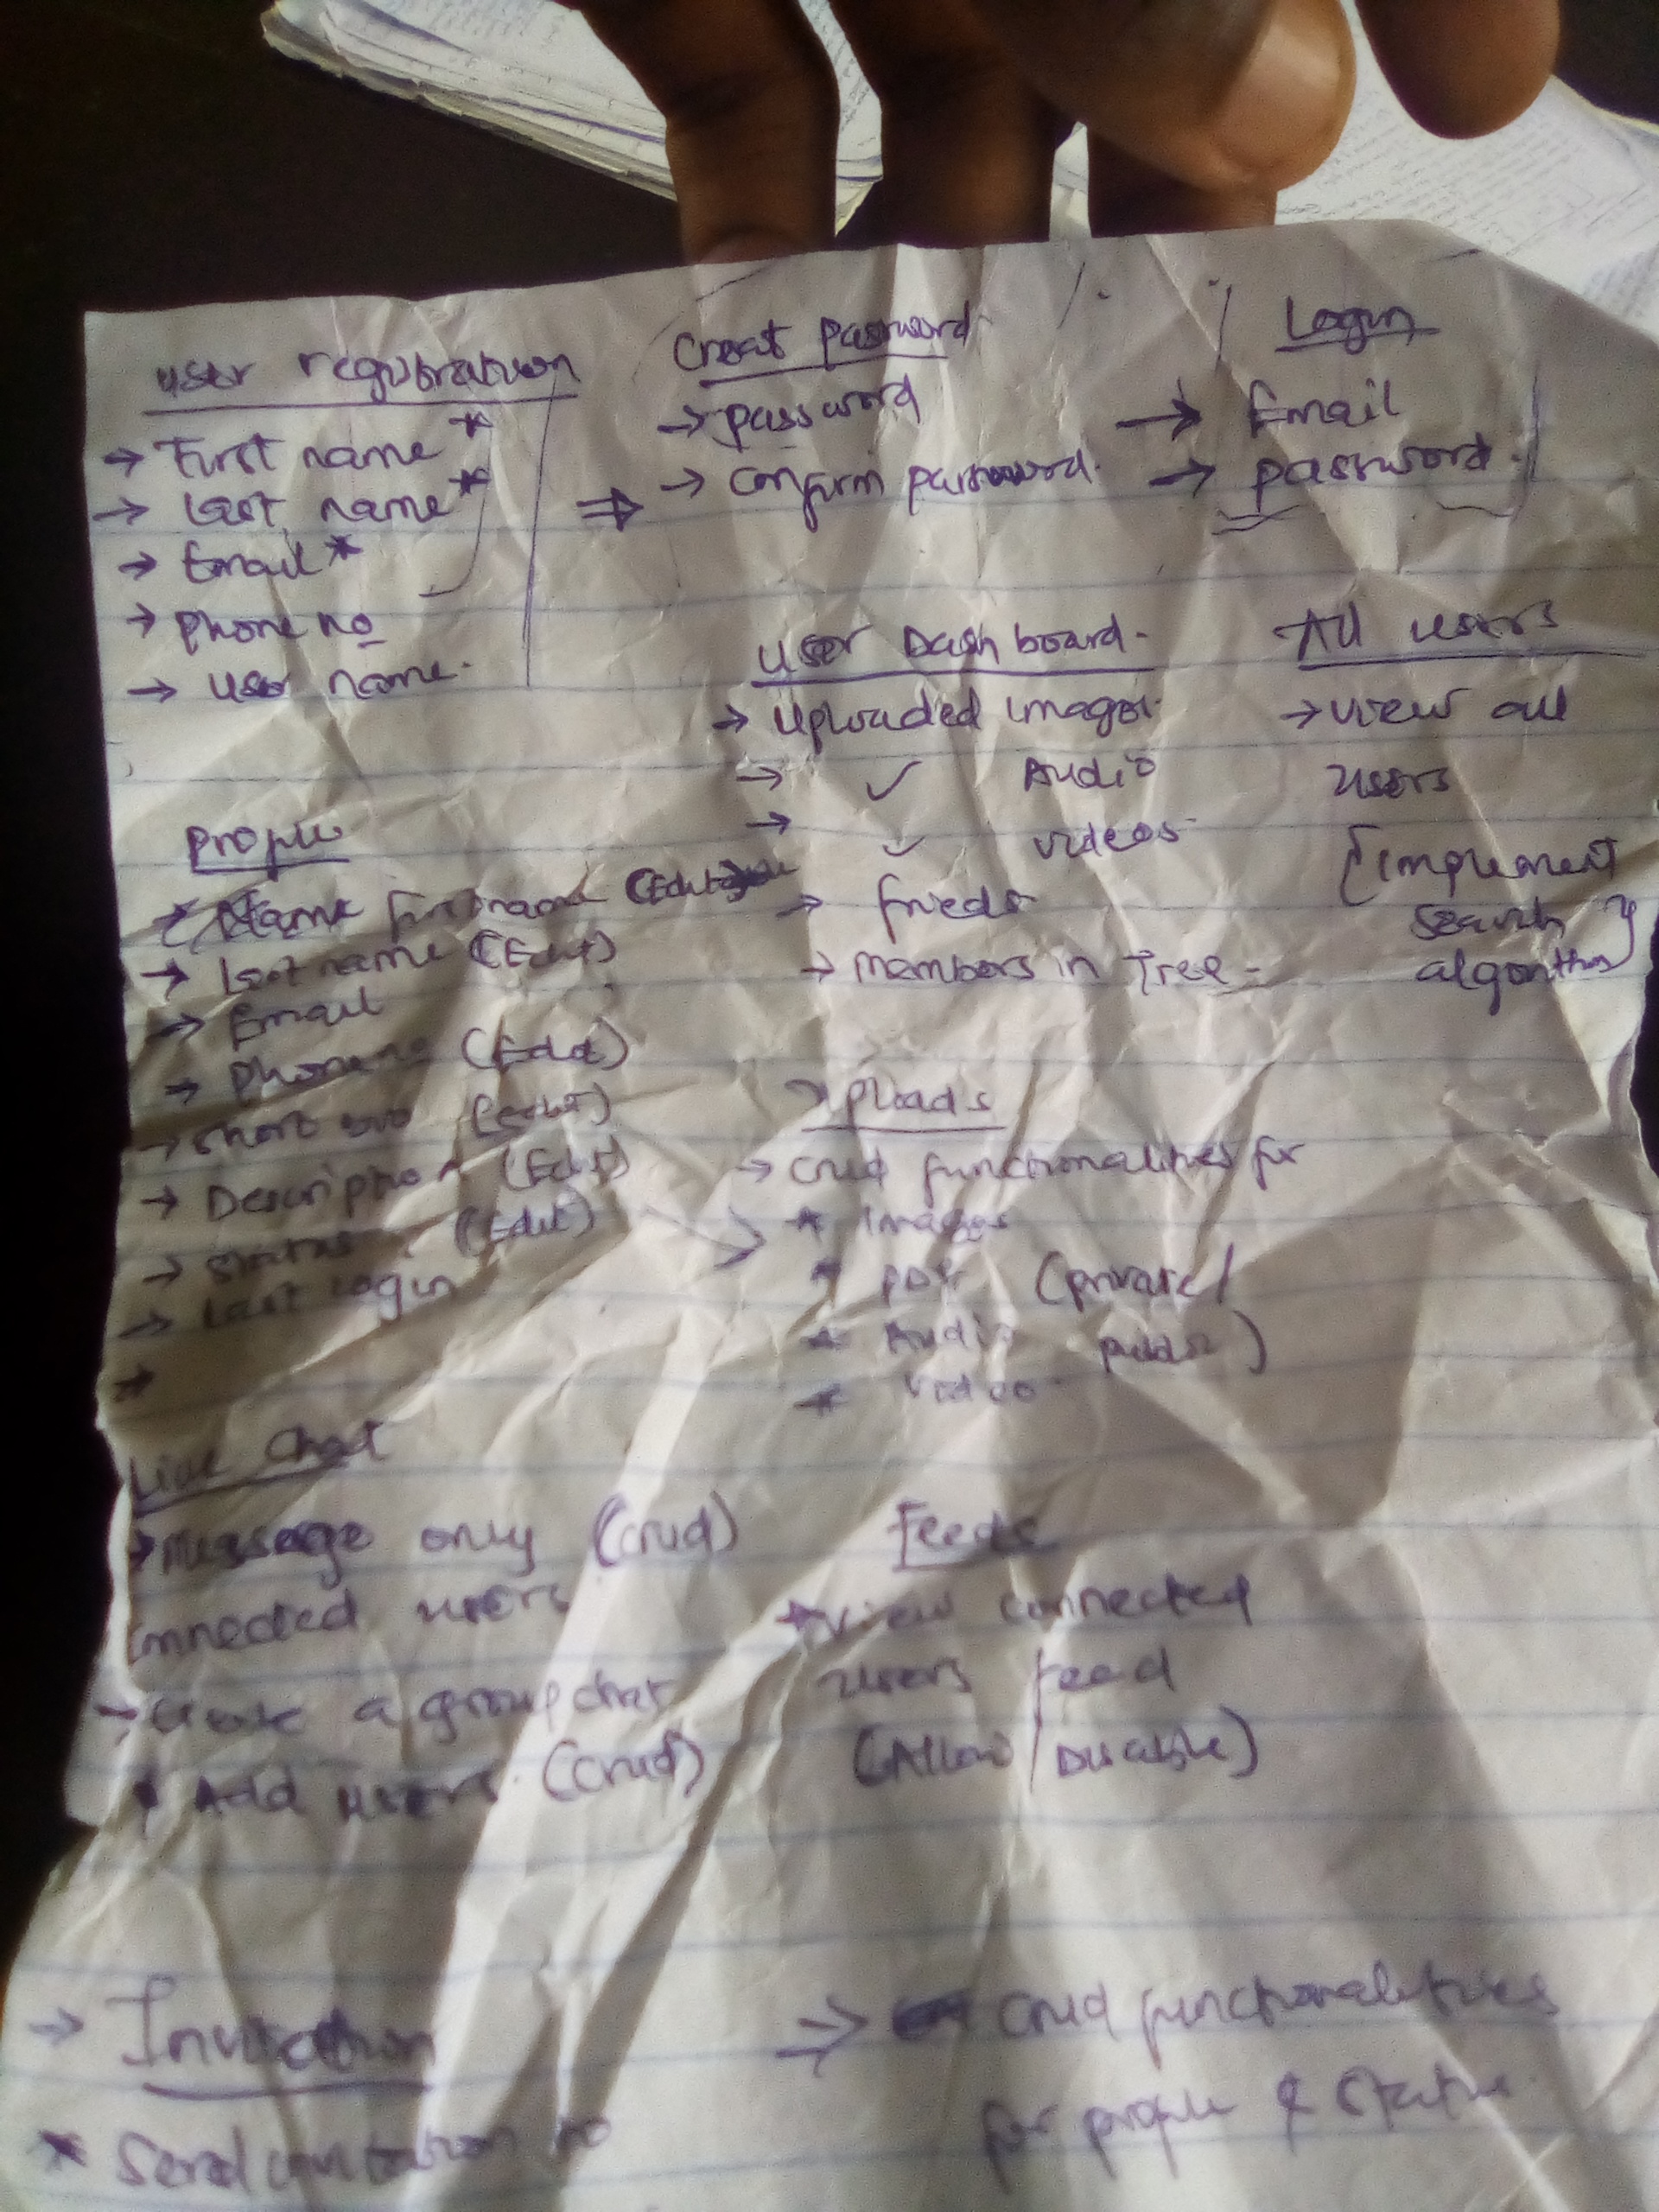 User registration
→ First name *
→ Last name *
→ Email *
→ Phone no
→ User name.
Creat password
→ password
→ confirm password.
Login
→ Email
→ password.
User Dash board.
→ Uploaded images
→ ✓ Audio
→ ✓ videos
→ frieds
→ members in Tree -
All users
→ view all
users
{implement
search
algorithm}
Profile
→ Name firstname (Edit)
→ Last name (Edit)
→ Email
→ phone no (Edit)
→ short bio (edit)
→ Description (Edit)
→ status (Edit)
→ Last login
→
uploads
→ crud functionalities for
* images
* PDF (private/
* Audio public)
* video
Live Chat
→ message only (crud)
connected users
→ Create a group chat
* Add users (crud)
Feeds
→ view connected
users feed
(Allow/Disable)
→ Invitation
* Send invitation to
⇒ crud functionalities
for profile & status